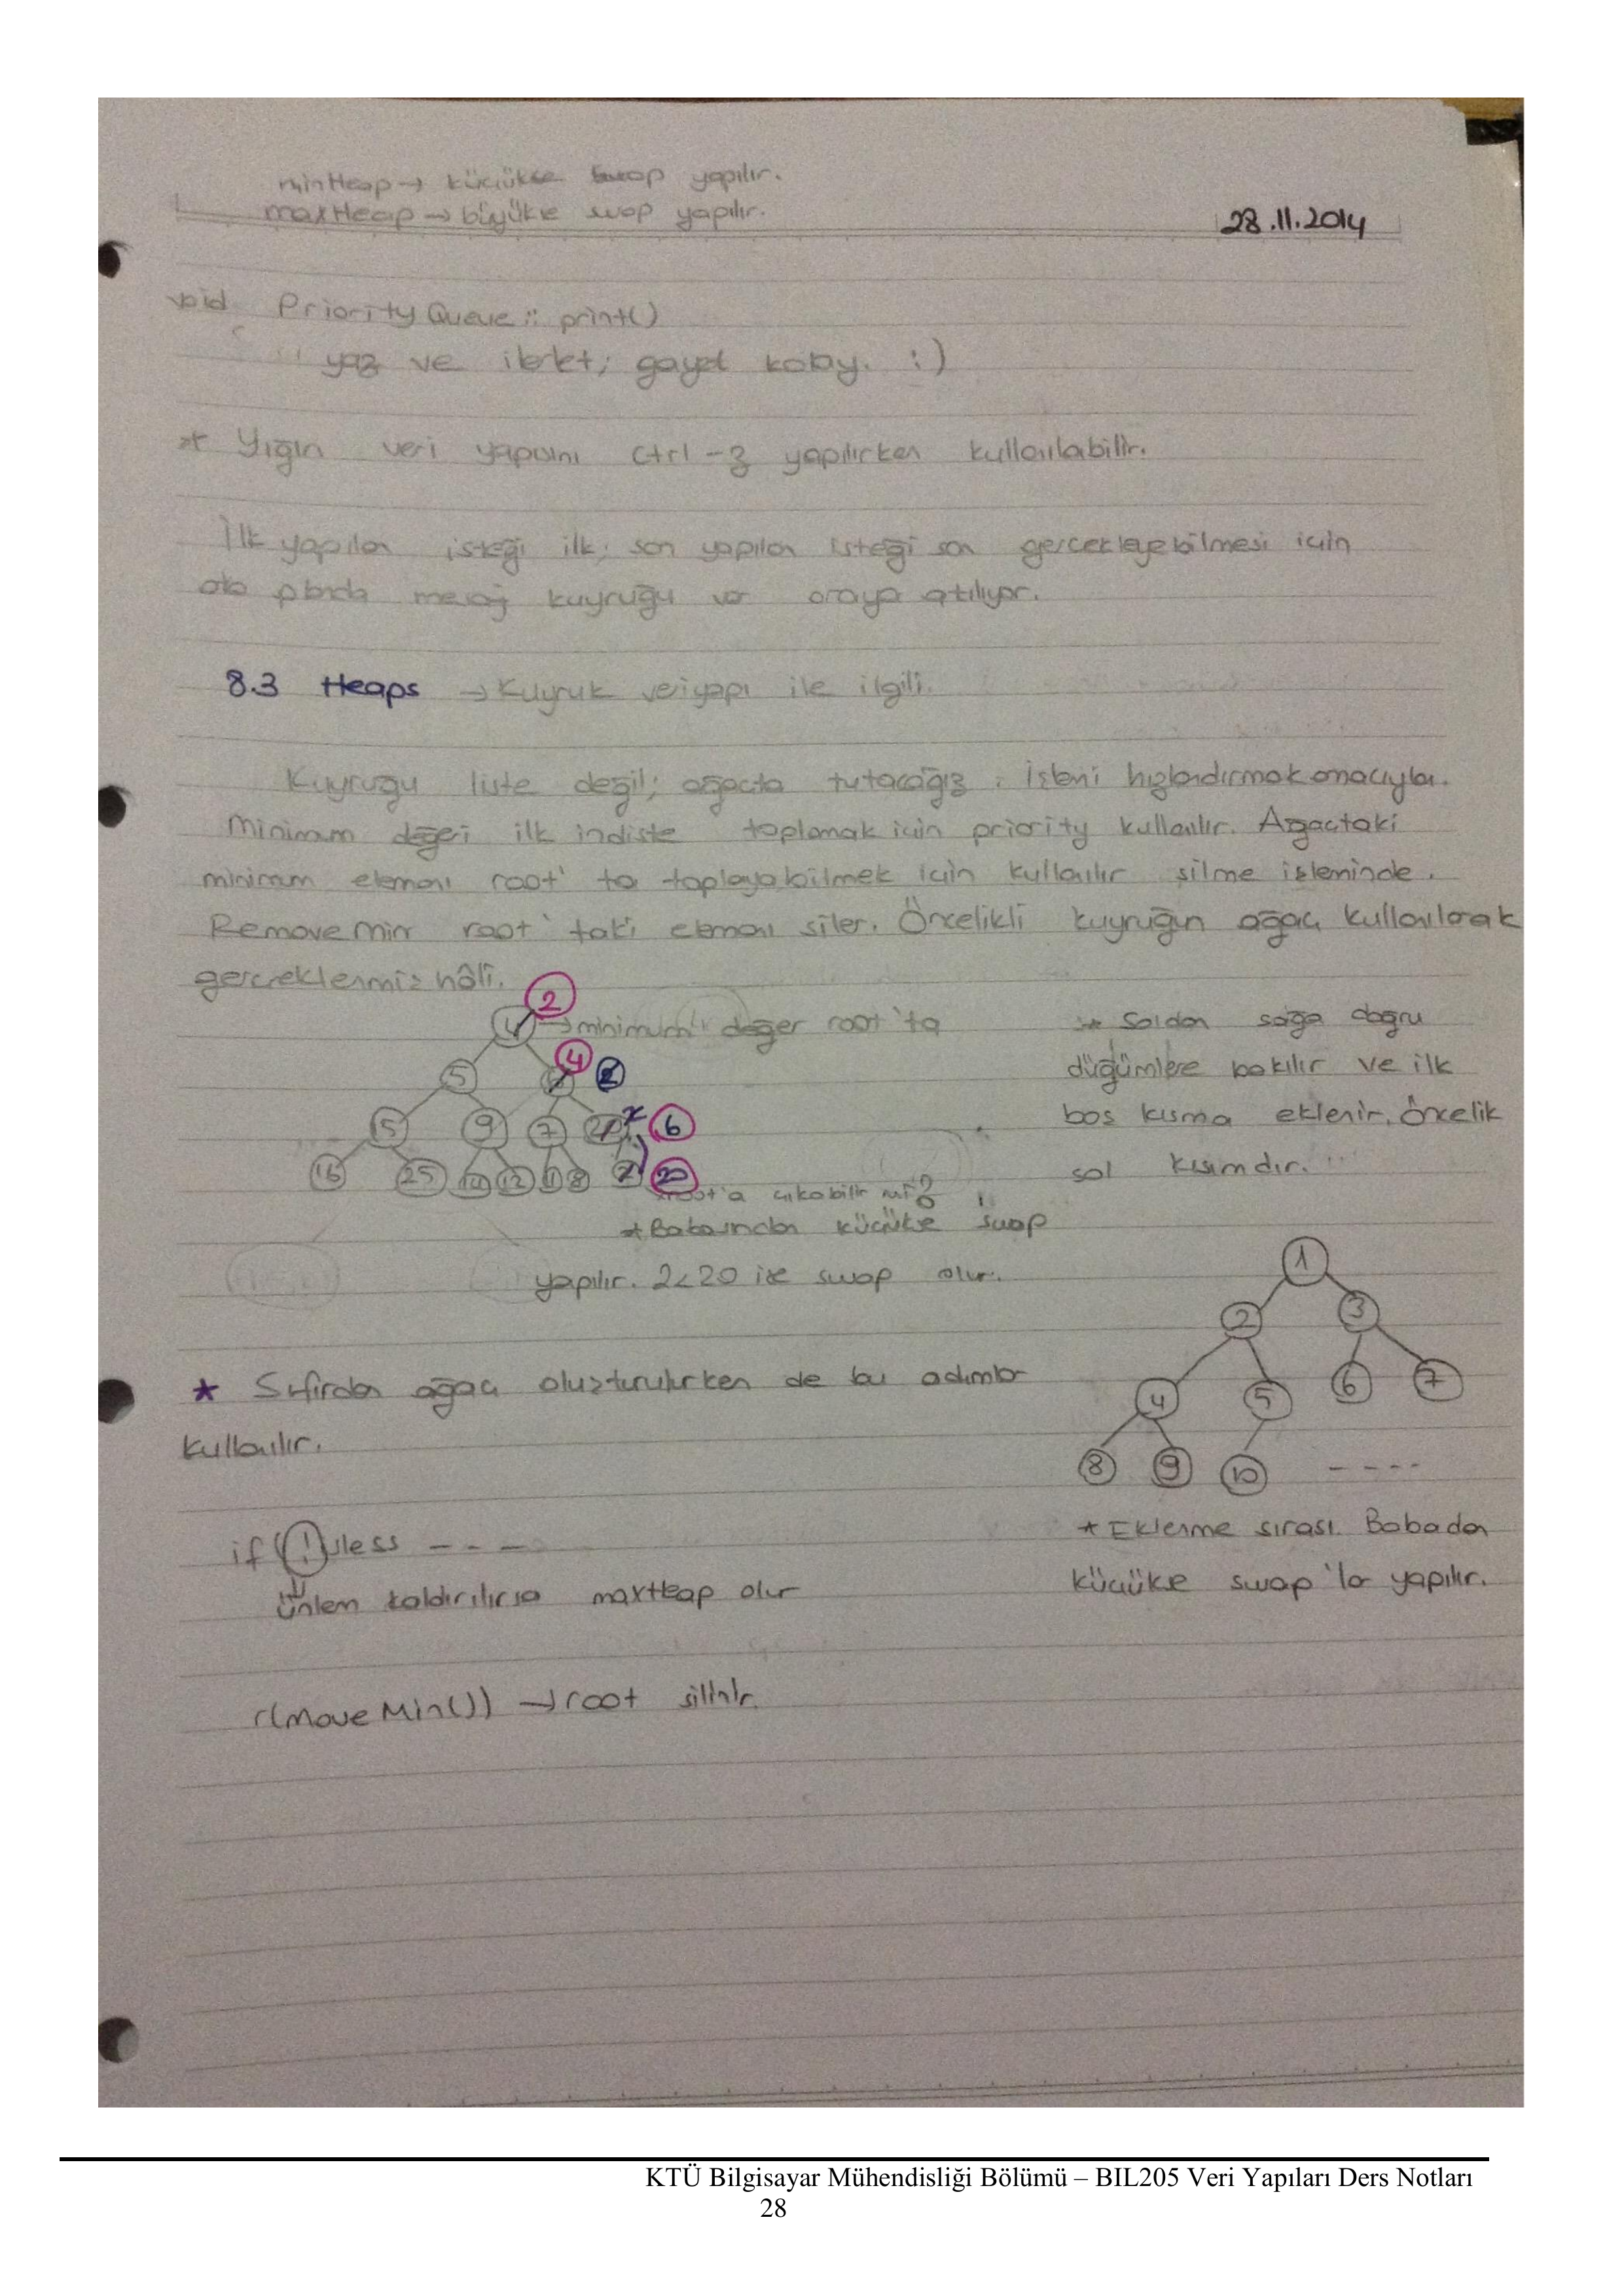 minHeap → küçükse swap yapılır.
maxHeap → büyükse swap yapılır.
28.11.2014
void PriorityQueue :: print()
yaz ve ilerlet; gayet kolay. :)
* Yığın veri yapısını ctrl-z yapılırken kullanılabilir.
İlk yapılan isteği ilk; son yapılan isteği son gerçekleyebilmesi için
arka planda mesaj kuyruğu var oraya atılıyor.
8.3 Heaps → Kuyruk veriyapı ile ilgili.
Kuyruğu liste değil; ağaçta tutacağız. İşlemi hızlandırmak amacıyla.
Minimum değeri ilk indiste toplamak için priority kullanılır. Ağaçtaki
minimum elemanı root'ta toplayabilmek için kullanılır silme işleminde.
RemoveMin root'taki elemanı siler. Öncelikli kuyruğun ağaç kullanılarak
gerçeklenmiş hâli.
2
4 → minimum değer root'ta
5 4 2
15 9 7 20 6
16 25 14 12 11 8 2 20
* root'a çıkabilir mi?
* Babasından küçükse swap
yapılır. 2<20 ise swap olur.
* Soldan sağa doğru
düğümlere bakılır ve ilk
boş kısma eklenir. Öncelik
sol kısımdır.
1
2 3
4 5 6 7
8 9 10 ----
* Eklenme sırası. Babadan
küçükse swap'lar yapılır.
* Sıfırdan ağaç oluşturulurken de bu adımlar
kullanılır.
if (!)less ---
ünlem kaldırılırsa maxHeap olur
r(moveMin()) → root silinir.
KTÜ Bilgisayar Mühendisliği Bölümü – BIL205 Veri Yapıları Ders Notları
28